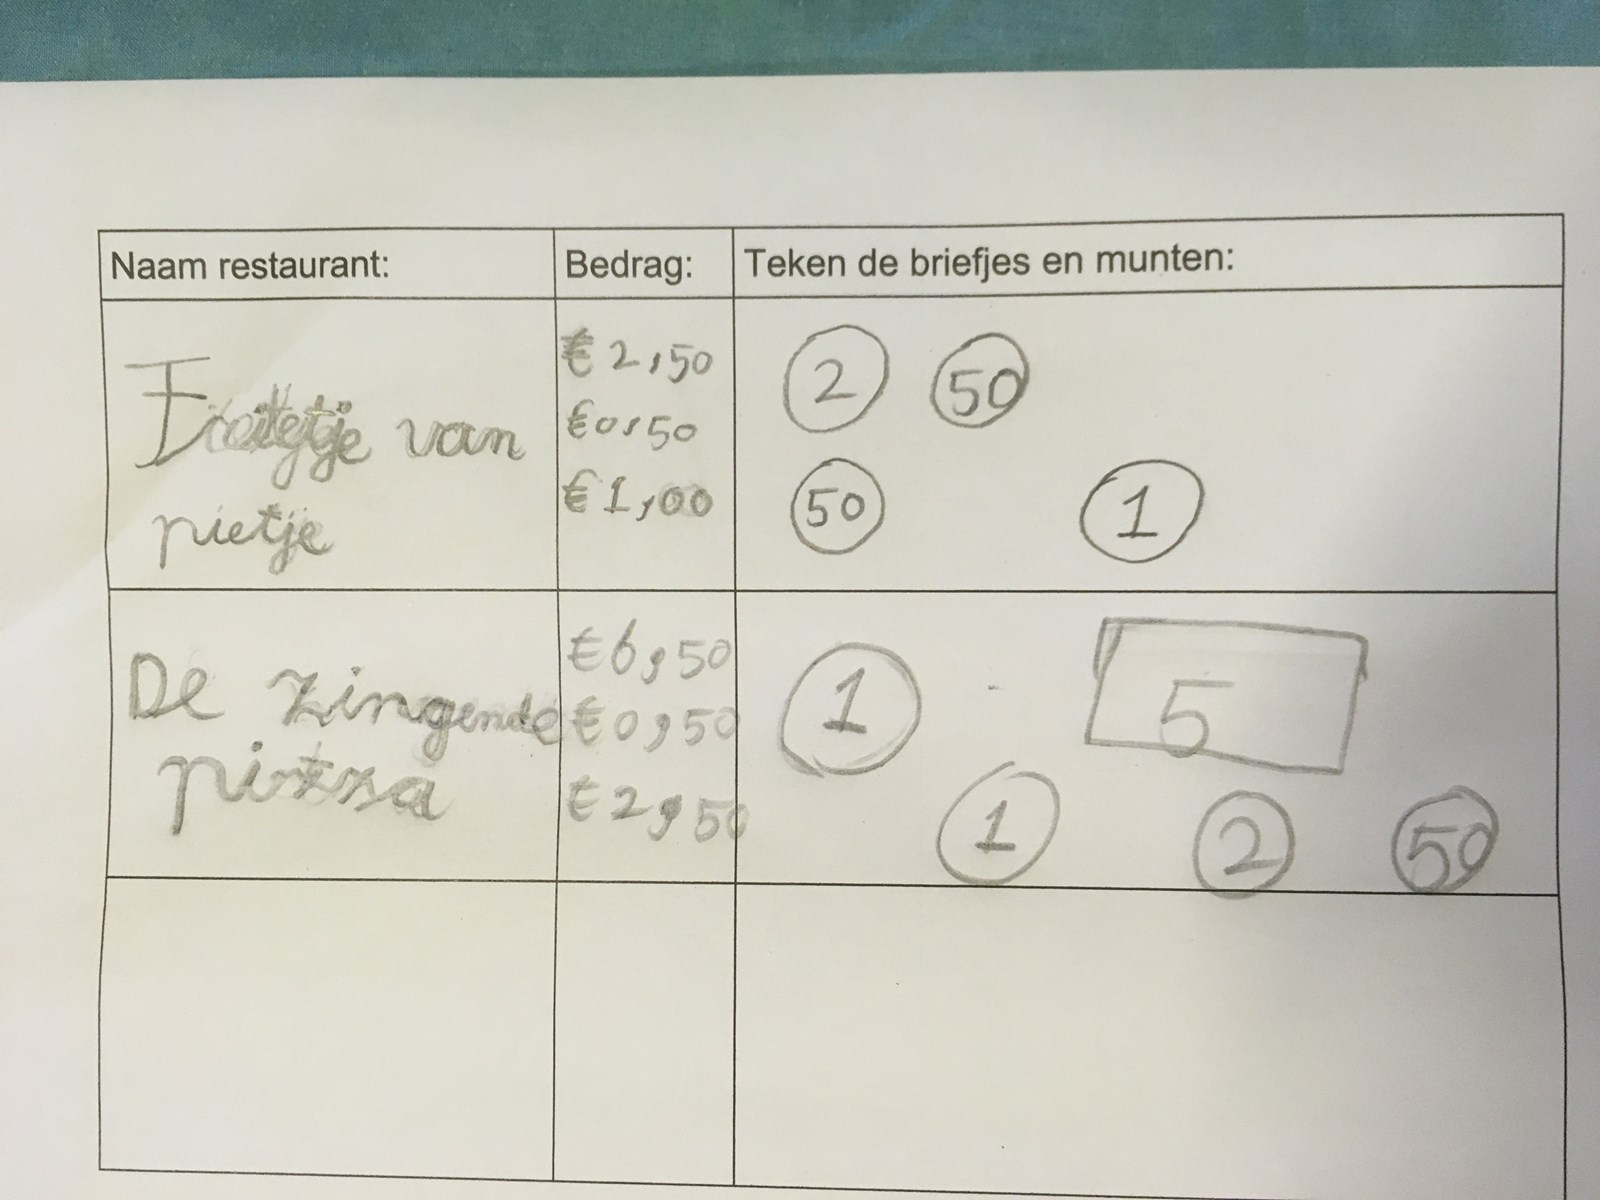 Naam restaurant: Bedrag: Teken de briefjes en munten:
€ 2,50 2 50
van €0,50
pietje €1,00 50 1
De zingende €6,50 1 5
pizza €0,50
€2,50 1 2 50